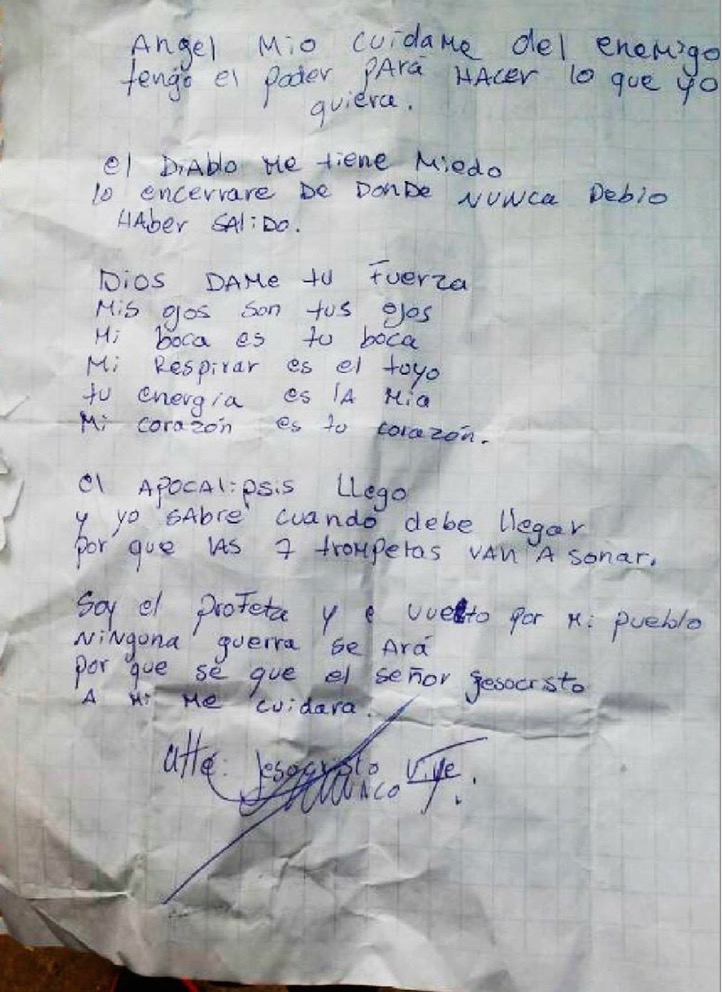 Angel Mio cuidame del enemigo
tengo el poder PARA HAcer lo que yo
quiera.
el DiAblo Me tiene Miedo
lo encerrare De DonDe NUNca Debio
HAber SAliDo.
Dios DAMe tu Fuerza
Mis ojos son tus ojos
Mi boca es tu boca
Mi Respirar es el tuyo
tu energía es lA Mia
Mi corazón es tu corazón.
el APOCAlipsis llego
y yo SAbré cuando debe llegar
por que lAS 7 troMpetas VAN A sonar.
Soy el profeta y e vuelto por Mi pueblo
NiNgUNa guerra se Ará
por que sé que el señor Jesocristo
A Mi Me cuidara.
Atte: Jesocristo Vive.